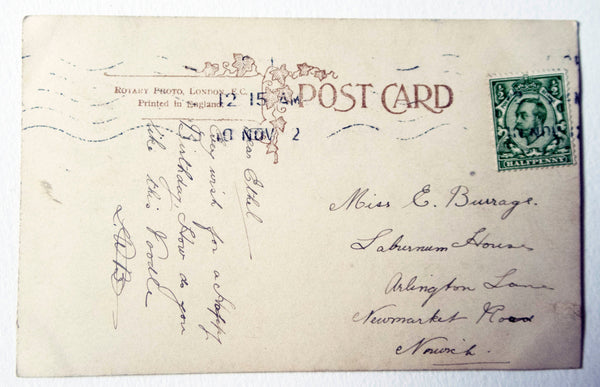 ROTARY PHOTO, LONDON, E.C.
Printed in England
POST CARD
12 15 AM
10 NOV 2
HALFPENNY
Dear Ethel
wish for a Happy
Birthday. How do you
like this Poodle
Miss E. Burrage.
Laburnum House
Arlington Lane
Newmarket Road
Norwich.